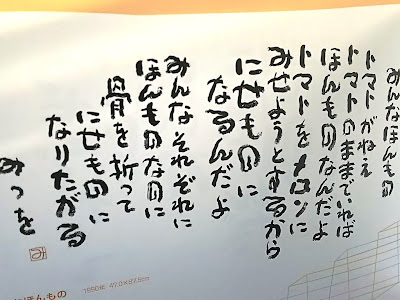 みんなほんもの
トマトがねえ
トマトのままでいれば
ほんものなんだよ
トマトをメロンに
みせようとするから
にせものに
なるんだよ
みんなそれぞれに
ほんものなのに
骨を折って
にせものに
なりたがる
みつを
み
ほんもの
1990年 47.0×87.8cm